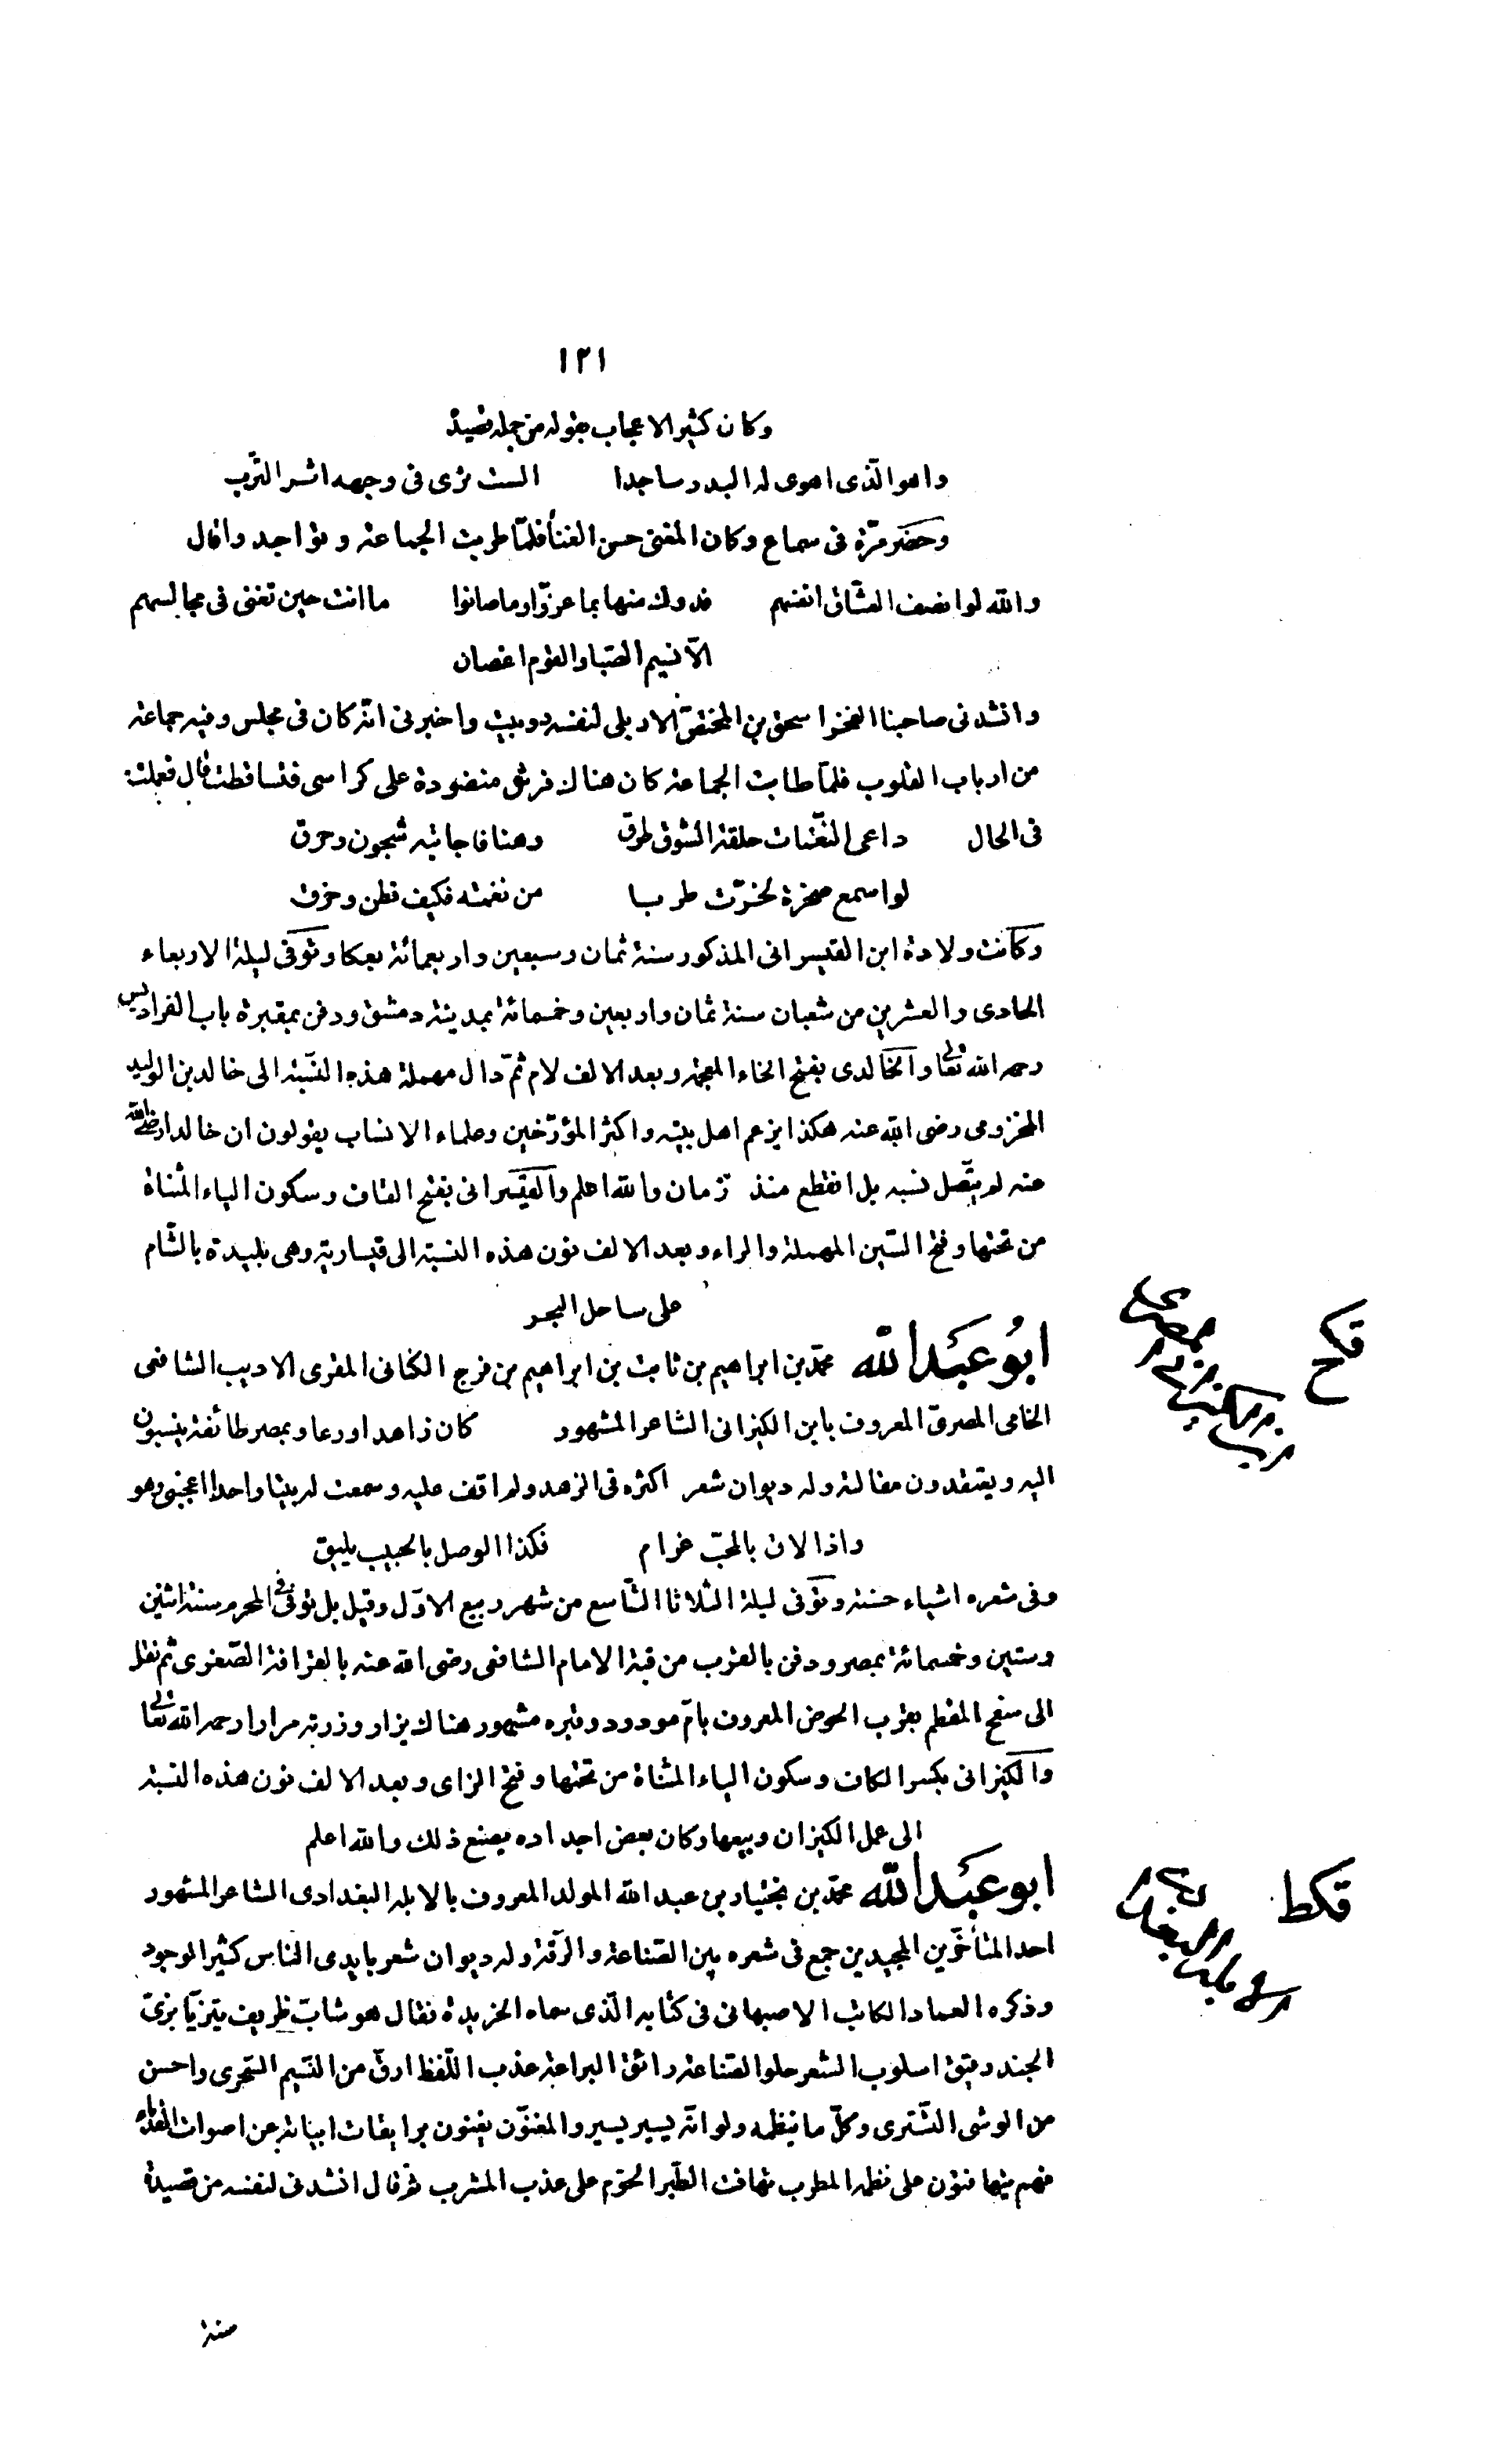 ١٢١
وكان كثير الاعجاب بقوله من جملة قصيدة
واهوا الّذى اهوى له البدر ساجدا الست ترى فى وجهه اثر الترّب
وحضر مرّة فى سماع وكان المغنى حسن الغنأ فلمّا طربت الجماعة وتواجد واقال
والله لو انصف العشّاق انفسهم فدوك منها بما عزّوا وما صانوا ما انت حين تغنى فى مجالسهم
الّا نسيم الصّبا والقوم اغصان
وانشدنى صاحبنا الفخر اسحق بن المختصّ الاربلى لنفسه دوبيت واخبرنى انّه كان فى مجلس وفيه جماعة
من ارباب القلوب فلمّا طابت الجماعة كان هناك فرش منضودة على كراسى فتساقطت قال فعملت
فى الحال داعى النغّمات حلقة الشوق طرق وهنا فاجابته شجون وحرق
لو اسمع صخرة لخرّت طربا من نغمته فكيف قطن وخرق
وكانت ولادة ابن القيسرانى المذكور سنة ثمان وسبعين واربعمائة بعكا وتوفى ليلة الاربعاء
الحادى والعشرين من شعبان سنة ثمان واربعين وخمسمائة بمدينة دمشق ودفن بمقبرة باب الفراديس
رحمه الله تعالى والخالدى بفتح الخاء المعجمة وبعد الالف لام ثمّ دال مهملة هذه النسّبة الى خالد بن الوليد
المخزومى رضى الله عنه هكذا يزعم اهل بيته واكثر المؤرّخين وعلماء الانساب يقولون ان خالدا رضى الله
عنه لم يتّصل نسبه بل انقطع منذ زمان والله اعلم والقيسرانى بفتح القاف وسكون الياء المثناة
من تحتها وفتح السّين المهملة والراء وبعد الالف نون هذه النسبة الى قيسارية وهى بليدة بالشّام
على ساحل البحر
قكح
ابُو عَبَد الله محمّد بن ابراهيم بن ثابت بن ابراهيم بن فرج الكنانى المقرى الاديب الشافعى
الخامى المصرىّ المعروف بابن الكيزانى الشاعر المشهور كان زاهدا ورعا وبمصر طائفة ينسبون
اليه ويعتقدون مقالته وله ديوان شعر اكثره فى الزهد ولم اقف عليه وسمعت له بيتا واحدا اعجبنى وهو
واذا لاق بالمحبّ غرام فكذا الوصل بالحبيب يليق
وفى شعره اشياء حسنة وتوفى ليلة الثلاثا التّاسع من شهر ربيع الاوّل وقيل بل توفى فى المحرم سنة اثنين
وستين وخمسمائة بمصر ودفن بالقرب من قبة الامام الشافعى رضى الله عنه بالقرافة الصّغرى ثم نقل
الى سفح المقطم بقرب الحوض المعروف بامّ مودود وقبره مشهور هناك يزار وزرته مرارا رحمه الله تعالى
والكيزانى بكسر الكاف وسكون الياء المثناة من تحتها وفتح الزاى وبعد الالف نون هذه النسبة
الى عمل الكيزان وبيعها وكان بعض اجداده يصنع ذلك والله اعلم
قكط
ابو عَبَد الله محمّد بن بختيار بن عبد الله المولد المعروف بالابله البغدادى الشاعر المشهور
احد المتأخّرين المجيدين جمع فى شعره بين الصّناعة والرّقة وله ديوان شعر بايدى الناس كثير الوجود
وذكره العماد الكاتب الاصبهانى فى كتابه الّذى سماه الخريدة فقال هو شابّ ظريف يتزيّا بزىّ
الجند رقيق اسلوب الشعر حلو الصّناعة رائق البراعة عذب اللّفظ ارقّ من النّسيم السّحرى واحسن
من الوشى التسّترى وكلّ ما ينظمه ولو انّه يسير يسير والمغنوّن يغنون برايقات ابياته عن اصوات القدماء
فهم يتهافتون على نظمه المطرب تهافت الطّير الحوّم على عذب المشرب ثم قال انشدنى لنفسه من قصيدة
سنة